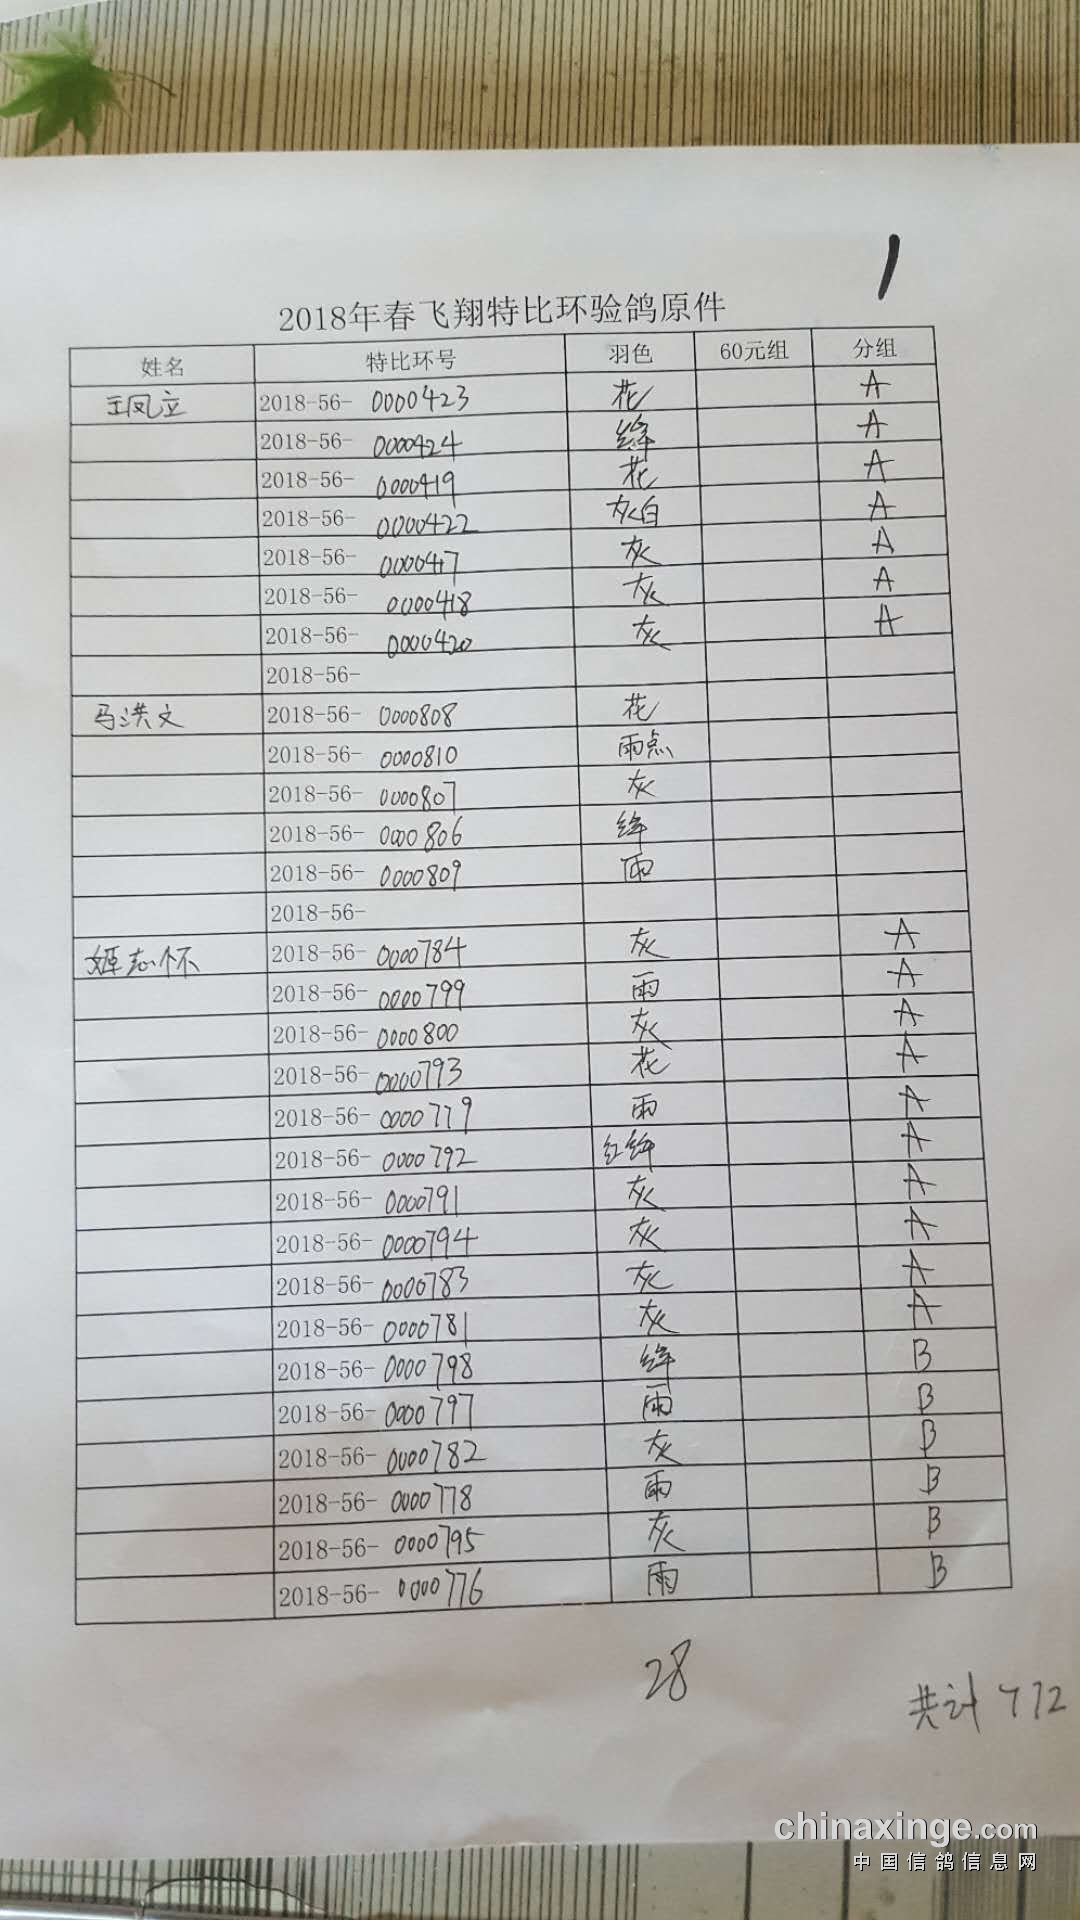 1
2018年春飞翔特比环验鸽原件
姓名 特比环号 羽色 60元组 分组
王凤立 2018-56- 0000423 花 A
2018-56- 0000424 绛 A
2018-56- 0000419 花 A
2018-56- 0000422 灰白 A
2018-56- 0000417 灰 A
2018-56- 0000418 灰 A
2018-56- 0000420 灰 A
2018-56-
马洪文 2018-56- 0000808 花
2018-56- 0000810 雨点
2018-56- 0000807 灰
2018-56- 0000806 绛
2018-56- 0000809 雨
2018-56-
志怀 2018-56- 0000784 灰 A
2018-56- 0000799 雨 A
2018-56- 0000800 灰 A
2018-56- 0000793 花 A
2018-56- 0000779 雨 A
2018-56- 0000792 红绛 A
2018-56- 0000791 灰 A
2018-56- 0000794 灰 A
2018-56- 0000783 灰 A
2018-56- 0000781 灰 A
2018-56- 0000798 绛 B
2018-56- 0000797 雨 B
2018-56- 0000782 灰 B
2018-56- 0000778 雨 B
2018-56- 0000795 灰 B
2018-56- 0000776 雨 B
28
共计 772
chinaxinge.com
中国信鸽信息网